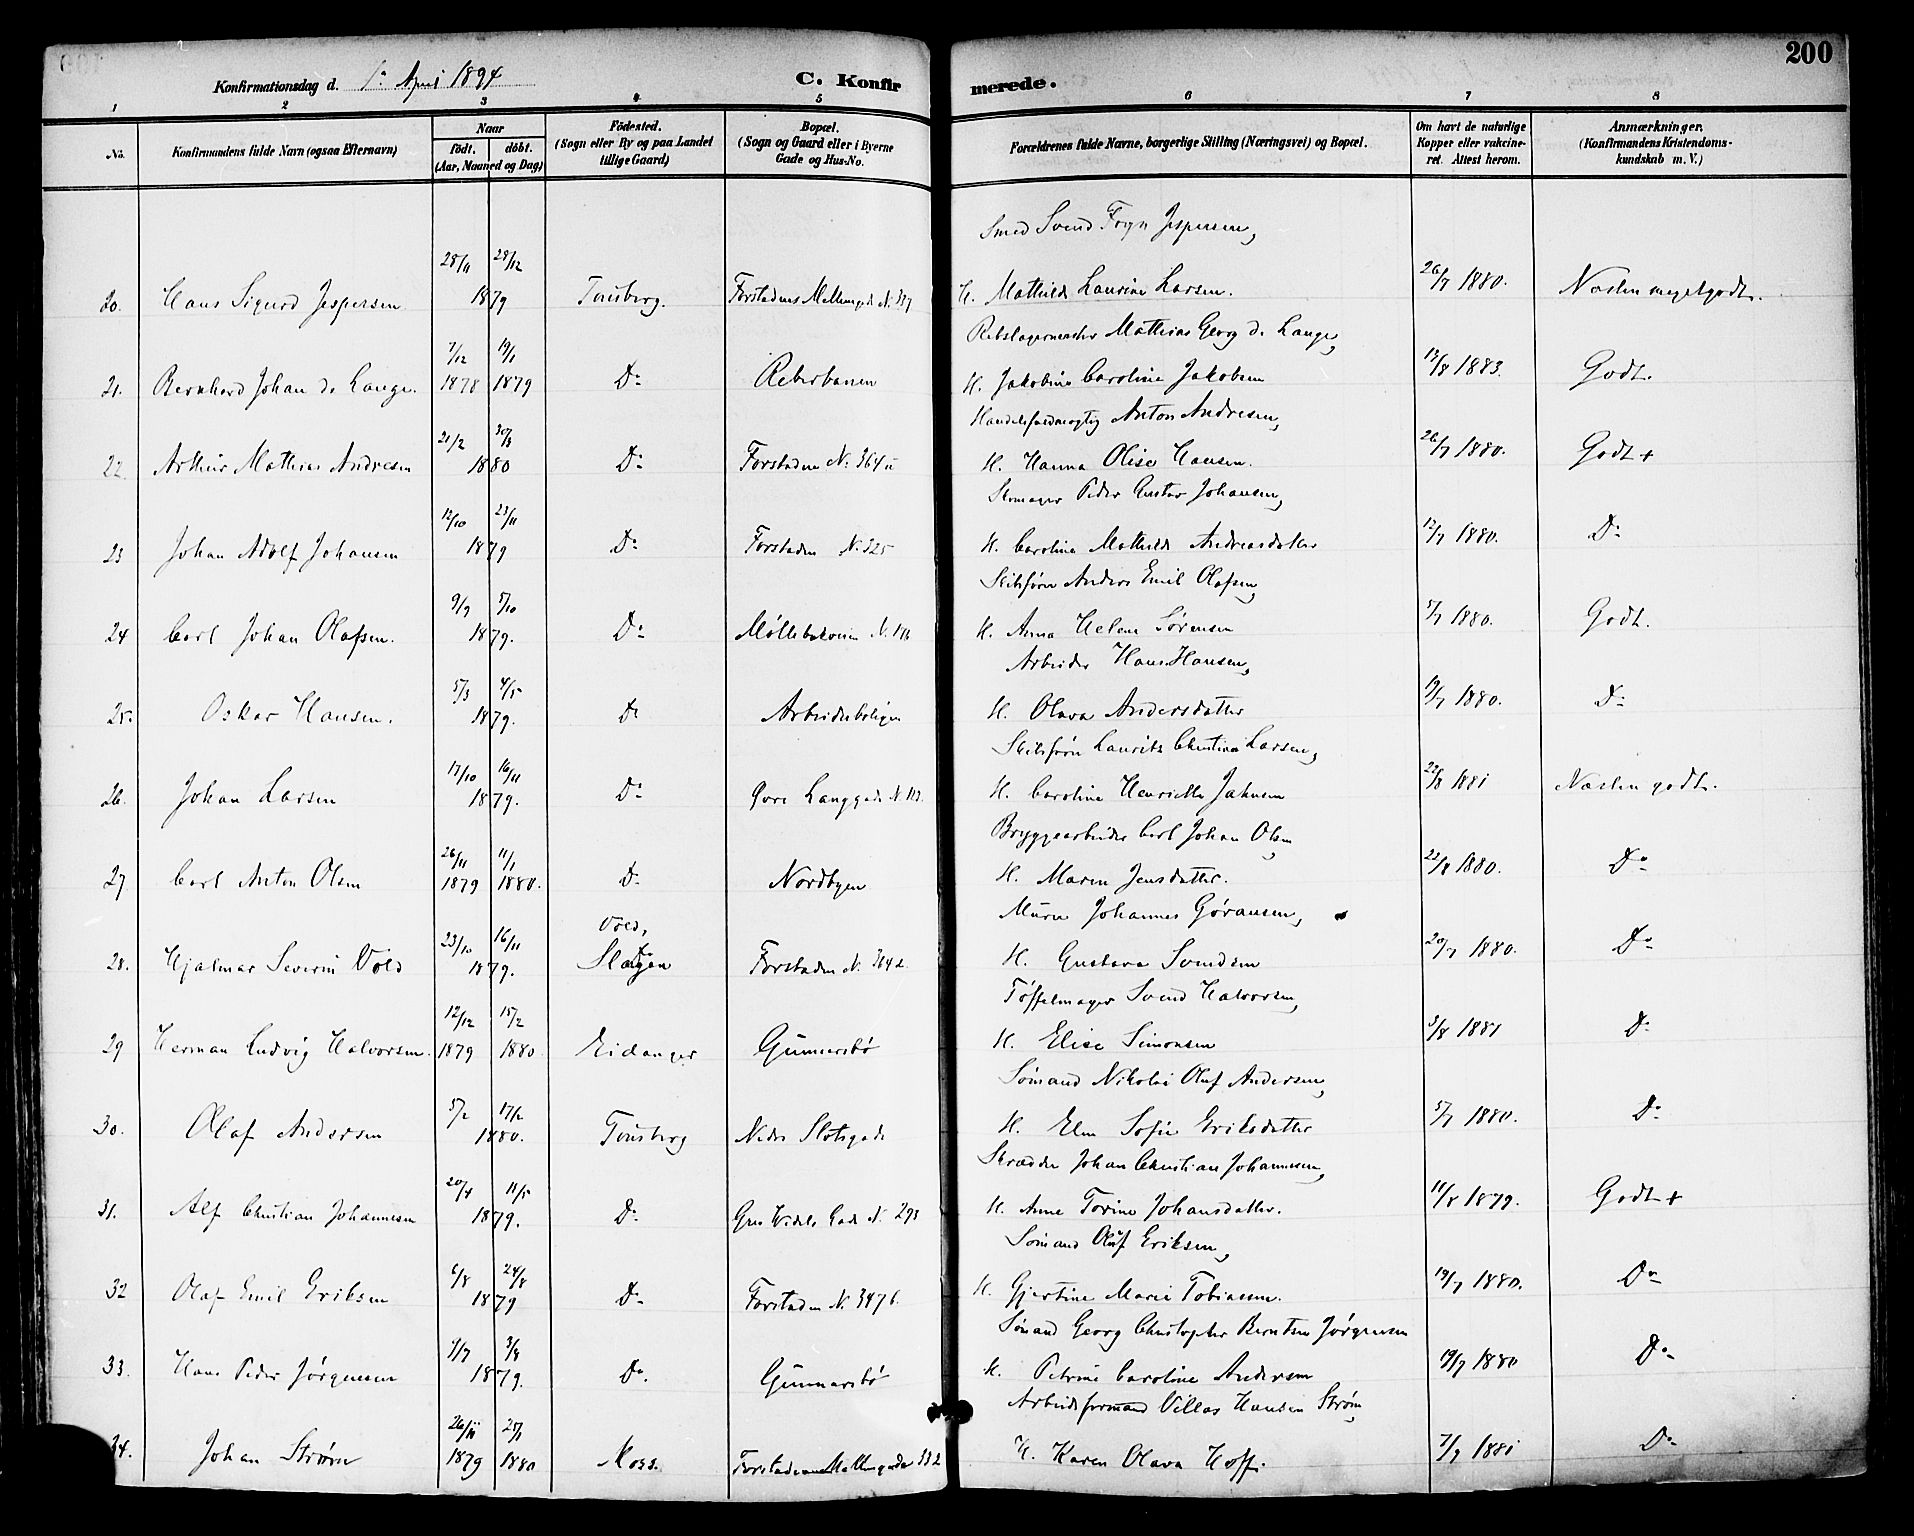 200
Konfirmationsdag d. 1ª April 1894
C. Konfirmerede.
1 2 3 4 5 6 7 8
No. Konfirmandens fulde Navn (ogsaa Efternavn) Naar födt. döbt. (Aar, Maaned og Dag) Födested. (Sogn eller By og paa Landet tillige Gaard) Bopæl. (Sogn og Gaard eller i Byerne Gade og Hus-No. Forældrenes fulde Navne, borgerlige Stilling (Næringsvei) og Bopæl. Om havt de naturlige Kopper eller vakcineret. Attest herom. Anmærkninger. (Konfirmandens Kristendomskundskab m. V.)
Smed Svend Foyn Jespersen,
20. Hans Sigurd Jespersen 28/11 28/12 1879 Tönsberg. Forstadens Mellemgade N. H. Mathilde Laurine Larsen. 26/7 1880. Næsten meget godt.
Rebslagermester Mathias Georg de Lange,
21. Bernhard Johan de Lange. 7/12 1878 19/1 1879 Dº Reberbanen H. Jakobine Caroline Jakobsen 13/8 1883. Godt.
Handelsfuldmægtig Anton Andresen,
22. Arthur Mathias Andresen 21/2 30/3 1880 Dº Forstaden N. 364 H. Hanna Olise Hansen. 26/7 1880. Godt +
Skomager Peder Gustav Johansen,
23 Johan Adolf Johansen 12/10 23/11 1879 Dº Forstaden N. 325 H. Caroline Mathilde Andreasdatter 12/7 1880. Dº
Skibsfører Anders Emil Olafsen,
24 Carl Johan Olafsen. 9/9 5/10 1879. Dº Møllebakken N. H. Anna Helene Sørensen 5/7 1880. Godt.
Arbeider Hans Hansen,
25. Oskar Hansen. 5/3 4/5 1879. Dº Arbeiderboligen H. Olava Andersdatter 19/7 1880. Dº
Skibsfører Laurits Christian Larsen,
26. Johan Larsen 17/10 16/11 1879. Dº Øvre Langgade N. 113. H. Caroline Henriette Jahnsen 22/8 1881 Næsten godt.
Bryggearbeider Carl Johan Olsen,
27 Carl Anton Olsen 26/11 1879 11/1 1880. Dº Nordbyen H. Maren Jensdatter. 22/8 1880. Dº
Murer Johannes Göransen,
28. Hjalmar Severin Vold 23/10 16/11 1879. Vold, Slagen Forstaden N. 364 2 H. Gustava Svendsen 20/7 1880. Dº
Tøffelmager Svend Halvorsen,
29 Herman Ludvig Halvorsen. 12/12 1879 15/2 1880 Eidanger Gunnarsbø H. Elise Simonsen 3/8 1881 Dº
Sømand Nikolai Oluf Andersen,
30. Olaf Andersen 5/2 17/2 1880. Tönsberg Nedre Slotsgade H. Elen Sofie Eriksdatter 5/7 1880. Dº
Skrædder Johan Christian Johannesen,
31. Alf Christian Johannesen 20/4 11/5 1879. Dº Grev Wedels Gade N. 293 H. Anne Torine Johansdatter. 11/8 1879. Godt +
Sømand Oluf Eriksen,
32 Olaf Emil Eriksen 6/8 24/8 1879 Dº Forstaden N. 347 b. H. Gjertine Marie Tobiassen. 19/7 1880. Dº
Sømand Georg Christopher Berntsen Jørgensen
33. Hans Peder Jørgensen 4/7 3/8 1879. Dº. Gunnarsbø H. Petrine Caroline Andersen 19/7 1880 Dº
Arbeidsformand Villas Hansen Strøm,
34. Johan Strøm 26/11 1879 25/1 1880 Moss. Forstadens Mellemgade 332 H. Karen Olava Hoff. 7/7 1881 Dº